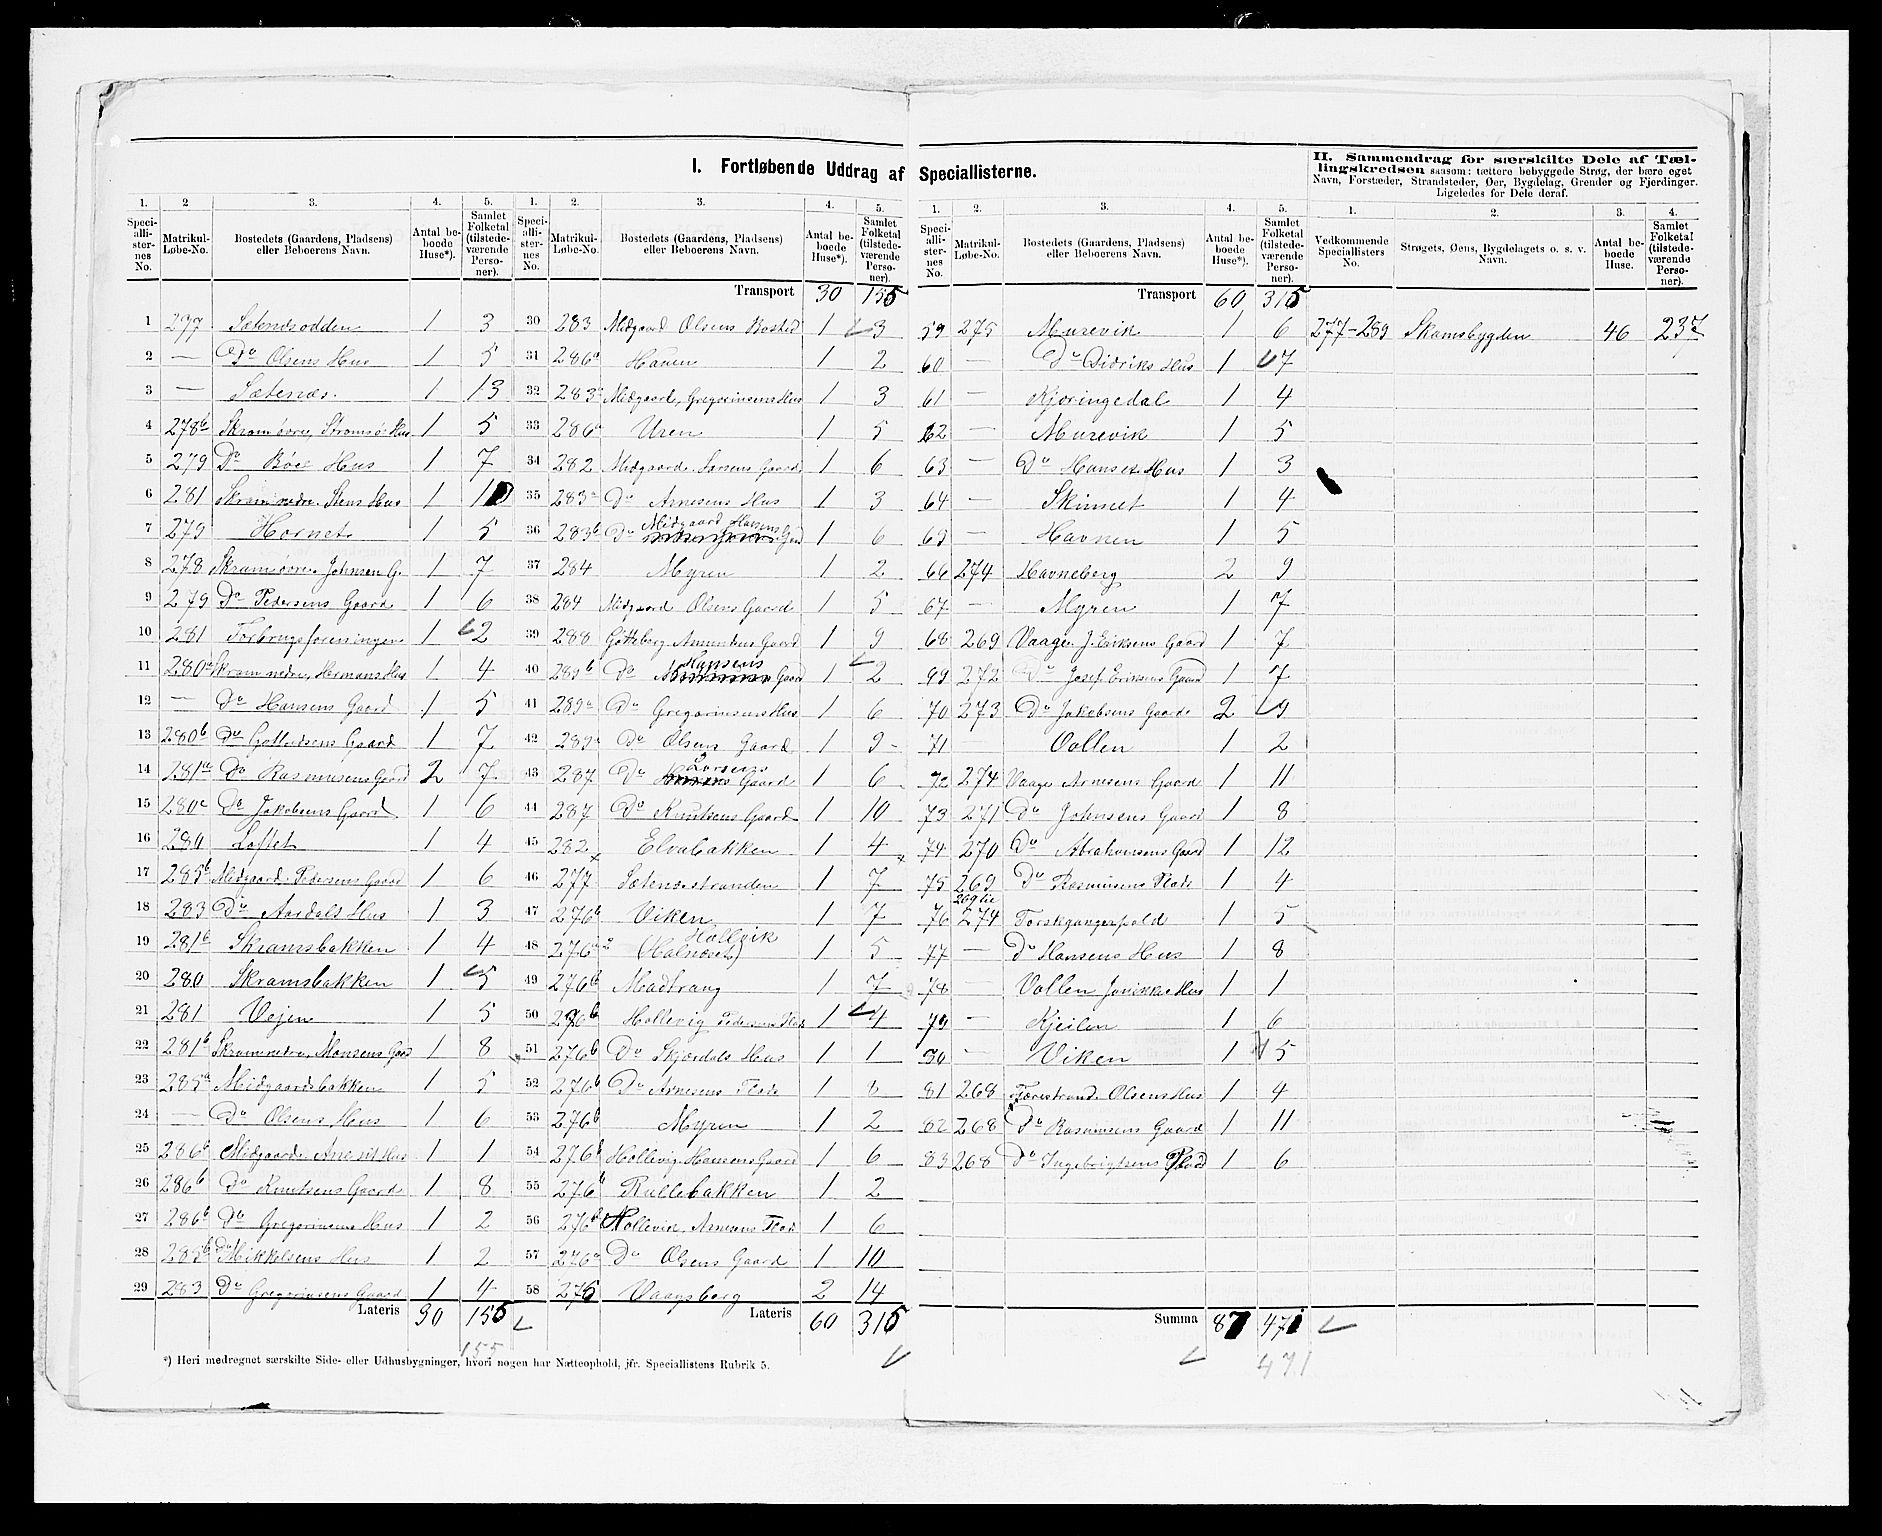 I. Fortløbende Uddrag af Speciallisterne.
II. Sammendrag for særskilte Dele af Tæl-
lingskredsen saasom: tættere bebyggede Strøg, der bære eget
Navn, Forstæder, Strandsteder, Øer, Bygdelag, Grender og Fjerdinger.
Ligeledes for Dele deraf.
1. 2 3. 4. 5.
Speci-alli-ster-nes No. Matrikul-Løbe-No. Bostedets (Gaardens, Pladsens) eller Beboerens Navn. Antal be-boede Huse*). Samlet Folketal (tilstede-værende Perso-ner).
1 277 Sætenesodden 1 3
2 — Do Olsens Hus 1 5
3 — Sætenæs. 1 13
4 278b Skram øvre, Strømsø Hus 1 5
5 279 Do Böes Hus 1 7
6 281 Skram nedre Stens Hus 1 10
7 279 Hornet 1 5
8 278 Skram øvre Johnsen G. 1 7
9 279 Do Pedersens Gaard 1 6
10 281 Forbrugsforeningen 1 2
11 280a Skram nedre, Hermans Hus 1 4
12 — Do Hansens Gaard 1 5
13 280b Do Gaard 1 7
14 281a Do Rasmusens Gaard 2 7
15 280c Do Jakobsens Gaard 1 6
16 280 Loftet 1 4
17 285b Midgaard Pedersens Gaard 1 6
18 283 Do Aardals Hus 1 3
19 281b Skramsbakken 1 4
20 280 Skramsbakken 1 5
21 281 Vejen 1 5
22 281b Skram nedre, Monsens Gaard 1 8
23 285a Midgaardsbakken 1 5
24 — Do Olsens Hus 1 6
25 286b Midgaard Hus 1 1
26 286b Do Knutsens Gaard 1 8
27 286b Do Gregoriusens Hus 1 2
28 285b Do Mikkelsens Hus 1 2
29 283 Do Gregoriusens Gaard 1 4
Lateris 30 155
155
*) Heri medregnet særskilte Side- eller Udhusbygninger, hvori nogen har Natteophold, jfr. Speciallistens Rubrik 5.
1. 2. 3. 4. 5.
Speci-alli-ster-nes No. Matrikul-Løbe-No. Bostedets (Gaardens, Pladsens) eller Beboerens Navn. Antal be-boede Huse*). Samlet Folketal (tilstede-værende Perso-ner).
Transport 30 155
30 283 Midgaard Olsens Bosted 1 3
31 286a Haven 1 2
32 283 Midgaard, Gregoriusens Hus 1 3
33 286a Uren 1 5
34 282 Midgaard Larsens Gaard 1 6
35 283a Do Arnesens Hus 1 3
36 283b Do Midgaard Hansens Gaard 1 6
37 284 Myren 1 2
38 284 Midgaard Olsens Gaard 1 5
39 288 Götteberg Amundsens Gaard 1 9
40 289b Do Hansens Gaard 1 2
41 289a Do Gregoriusens Hus 1 6
42 289a Do Olsens Gaard 1 9
43 287 Do Larsens Gaard 1 6
44 287 Do Knutsens Gaard 1 10
45 282 Elvebakken 1 4
46 277 Sætenesstranden 1 7
47 276b Viken 1 7
48 276a Hollevik (Halnæset) 1 5
49 276b Madtrang 1 7
50 276b Hollevig Pedersens Plads 1 4
51 276b Do Skjærdals Hus 1 1
52 276b Do Arnesens Plads 1 8
53 276b Myren 1 2
54 276b Hollevig Hansens Gaard 1 6
55 276a Rullebakken 1 2
56 276b Hollevik, Arnesens Plads 1 6
57 276a Do Olsens Gaard 1 10
58 275 Vaagsberg 2 14
Lateris 60 315
1. 2. 3. 4. 5.
Speci-alli-ster-nes No. Matrikul-Løbe-No. Bostedets (Gaardens, Pladsens) eller Beboerens Navn. Antal be-boede Huse*). Samlet Folketal (tilstede-værende Perso-ner).
Transport 60 315
59 275 Murevik 1 6
60 — Do Didriks Hus 1 7
61 — Kjøringedal 1 4
62 — Murevik 1 5
63 — Do Hanses Hus 1 3
64 — Skinnet 1 4
65 — Havnen 1 5
66 274 Havneberg 2 9
67 — Myren 1 7
68 269 Vaage J. Eriksens Gaard 1 7
69 272 Do Josef Eriksens Gaard 1 7
70 273 Do Jakobsens Gaard 2 9
71 Vollen 1 2
72 274 Vaage Arnesens Gaard 1 11
73 271 Do Johnsens Gaard 1 8
74 270 Do Abrahamsens Gaard 1 12
75 269 Do Rasmusens Plads 1 4
76 269 til 274 Torskgangerpold 1 5
77 — Do Hansens Hus 1 8
78 — Vollen Hus 1 1
79 — Kjeilen 1 6
80 — Viken 1 5
81 268 Færestrand Olsens Hus 1 4
82 268 Do Rasmusens Gaard 1 11
83 268 Do Ingebrigtsens Plads 1 6
Summa 87 471
471
1. 2. 3. 4.
Vedkommende Speciallisters No. Strøgets, Øens, Bygdelagets o. s. v. Navn. Antal be-boede Huse. Samlet Folketal (tilstede-værende Perso-ner).
277-289 Skamsbygden 46 237